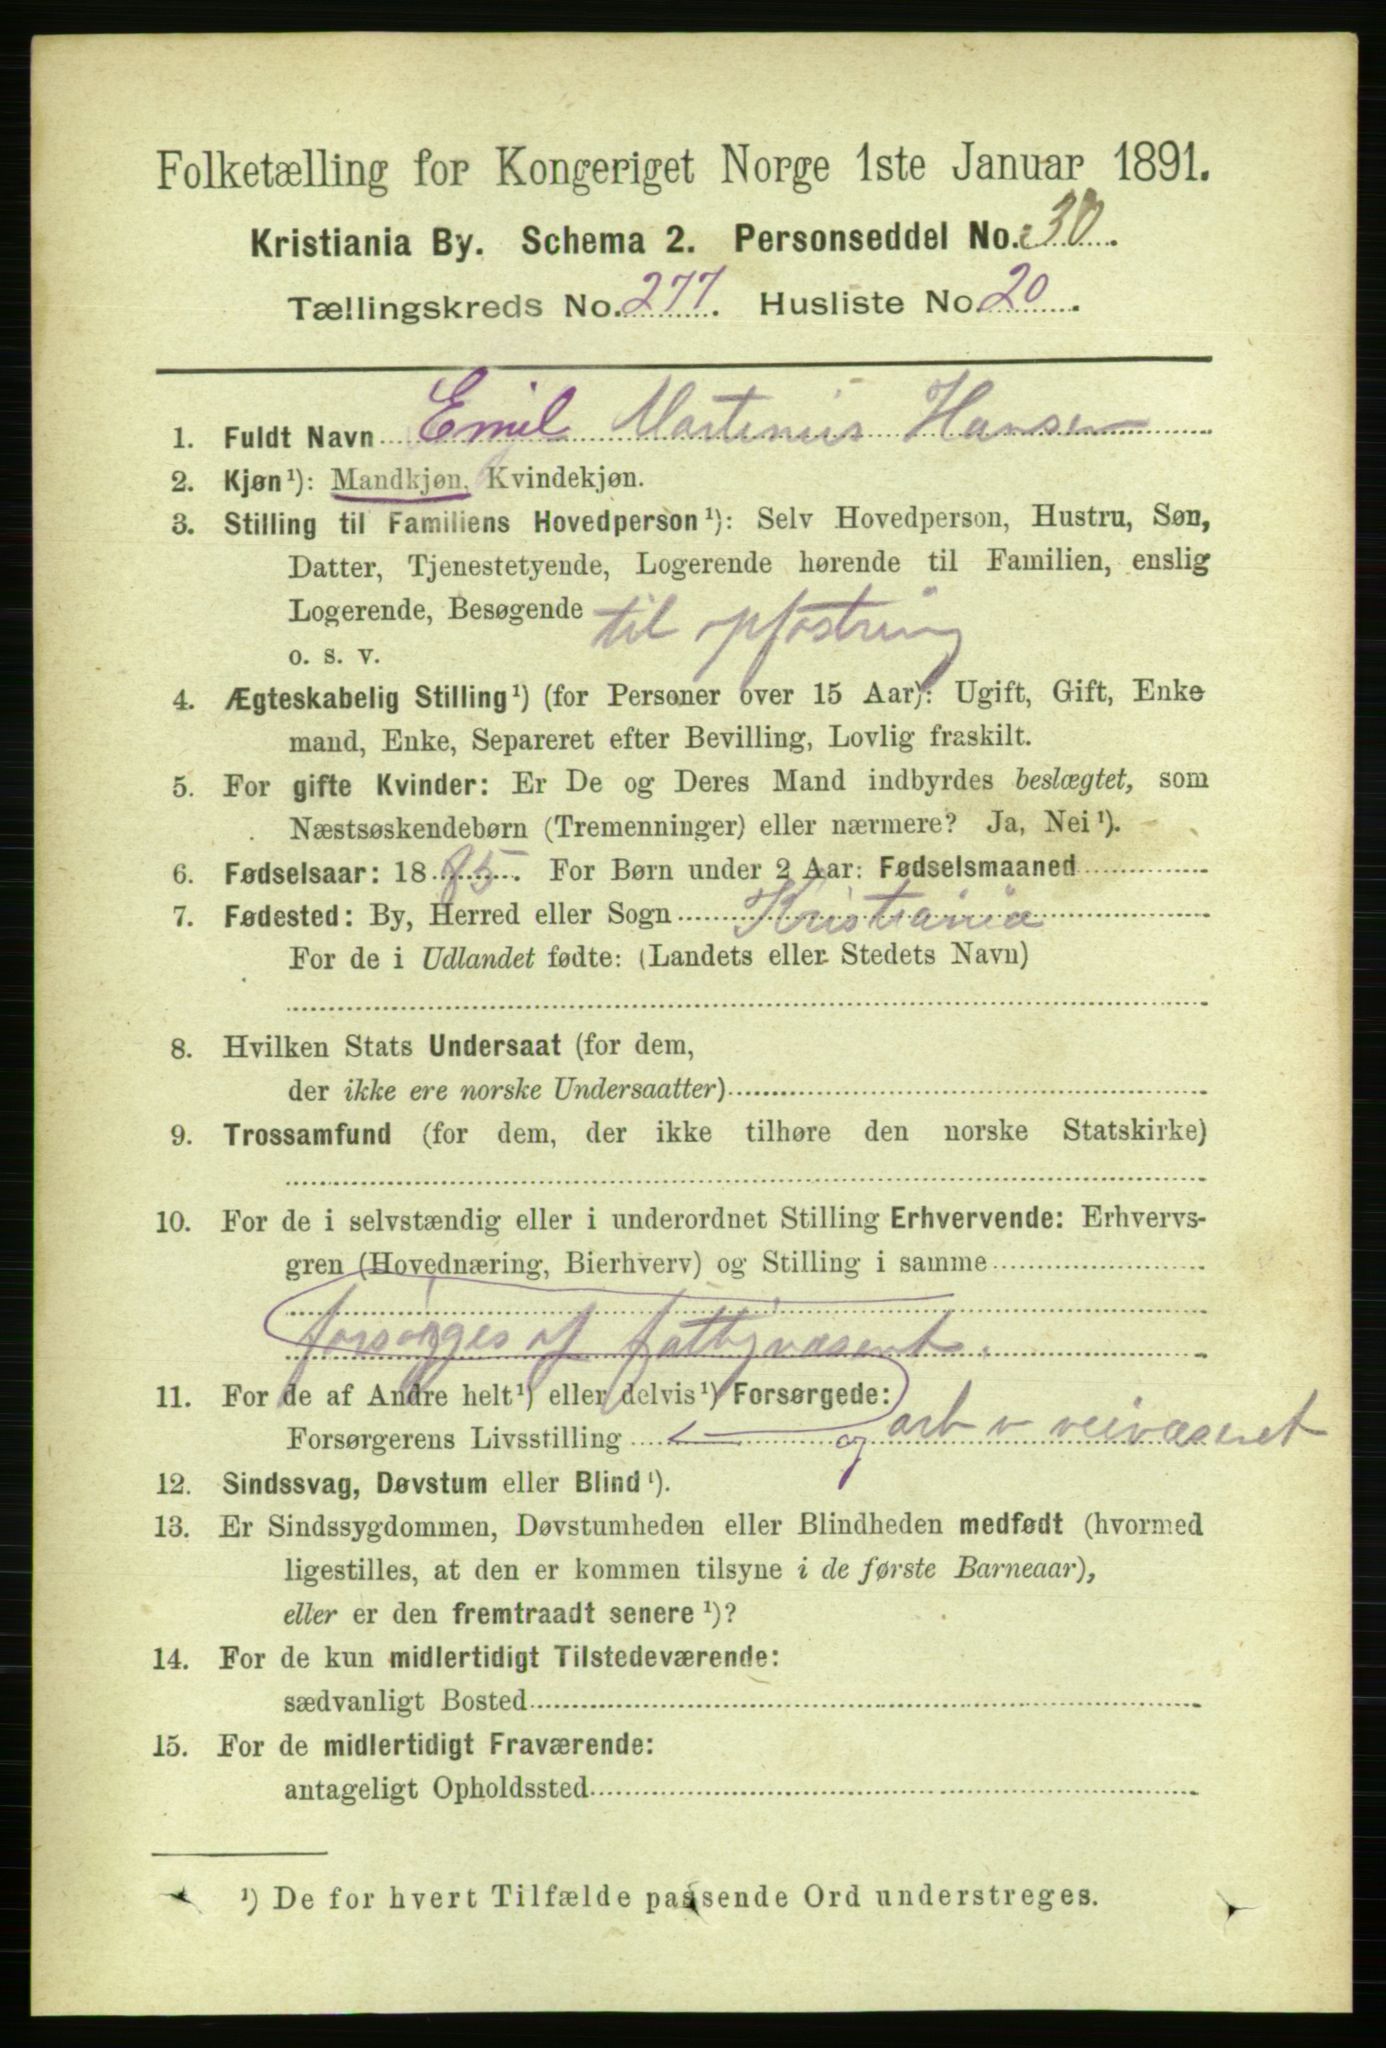 Folketælling for Kongeriget Norge 1ste Januar 1891.
Kristiania By. Schema 2. Personseddel No. 30.
Tællingskreds No. 277. Husliste No. 20.
1. Fuldt Navn Emil Martinius Hansen
2. Kjøn¹): Mandkjøn, Kvindekjøn.
3. Stilling til Familiens Hovedperson¹): Selv Hovedperson, Hustru, Søn,
Datter, Tjenestetyende, Logerende hørende til Familien, enslig
Logerende, Besøgende til opfostring
o. s. v.
4. Ægteskabelig Stilling¹) (for Personer over 15 Aar): Ugift, Gift, Enke
mand, Enke, Separeret efter Bevilling, Lovlig fraskilt.
5. For gifte Kvinder: Er De og Deres Mand indbyrdes beslægtet, som
Næstsøskendebørn (Tremenninger) eller nærmere? Ja, Nei¹).
6. Fødselsaar: 1885. For Børn under 2 Aar: Fødselsmaaned
7. Fødested: By, Herred eller Sogn Kristiania
For de i Udlandet fødte: (Landets eller Stedets Navn)
8. Hvilken Stats Undersaat (for dem,
der ikke ere norske Undersaatter)
9. Trossamfund (for dem, der ikke tilhøre den norske Statskirke)
10. For de i selvstændig eller i underordnet Stilling Erhvervende: Erhvervs-
gren (Hovednæring, Bierhverv) og Stilling i samme
forsørges af fattigvæsenet.
11. For de af Andre helt¹) eller delvis¹) Forsørgede:
Forsørgerens Livsstilling og arb v veivæsenet
12. Sindssvag, Døvstum eller Blind¹).
13. Er Sindssygdommen, Døvstumheden eller Blindheden medfødt (hvormed
ligestilles, at den er kommen tilsyne i de første Barneaar),
eller er den fremtraadt senere¹)?
14. For de kun midlertidigt Tilstedeværende:
sædvanligt Bosted
15. For de midlertidigt Fraværende:
antageligt Opholdssted
¹) De for hvert Tilfælde passende Ord understreges.